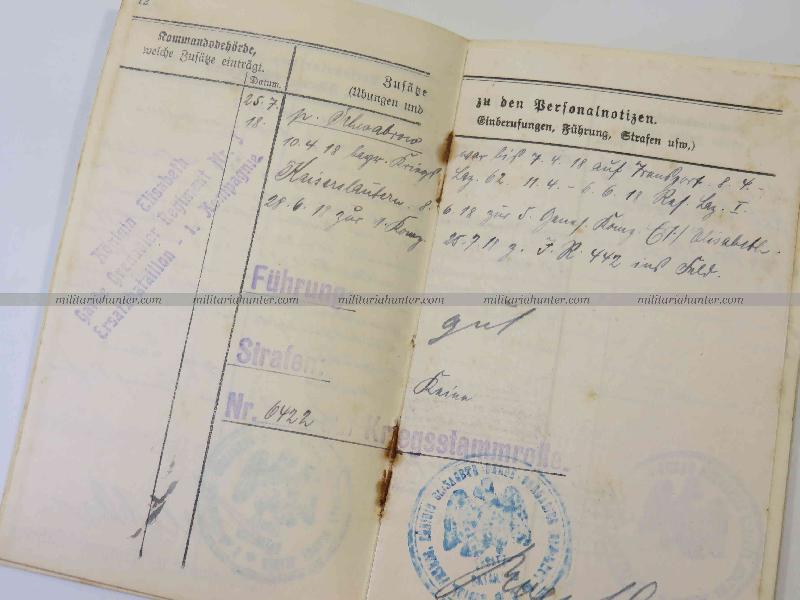 12
Kommandobehörde,
welche Zusätze einträgt.
Datum.
Zusätze
(Übungen und
zu den Personalnotizen.
Einberufungen, Führung, Strafen usw.)
25.7.
18.
10.4.18
Kaiserslautern. 8.
28.6.18 zur 1. Komp.
war bis 7.4.18 auf Transport. 8.4.-
Laz. 62. 11.4. - 6.6.18 Res. Laz. I.
6.18 zur 5. Genes. Komp. Elisabeth.
25.7.18 z. I. R. 442 ins Feld.
Königin Elisabeth
Garde Grenadier Regiment Nr. 3
Ersatzbataillon - 1. Kompagnie
militariahunter.com militariahunter.com militariahunter.com militariahunter.com militariahunter.com
Führung:
gut
Strafen:
Keine
Nr. 6422 der Kriegsstammrolle.